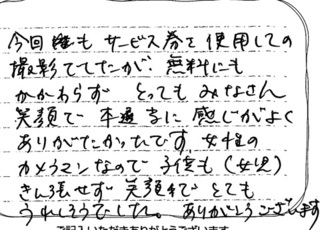 今回 サービス券を使用しての
撮影でしたが、無料にも
かかわらず とっても みなさん
笑顔で 感じがよく
ありがたかったです。女性の
カメラマンなので 子供も(女児)
きん張せず 笑顔で とても
うれしそうでした。ありがとうございます
ご記入いただきありがとうございます